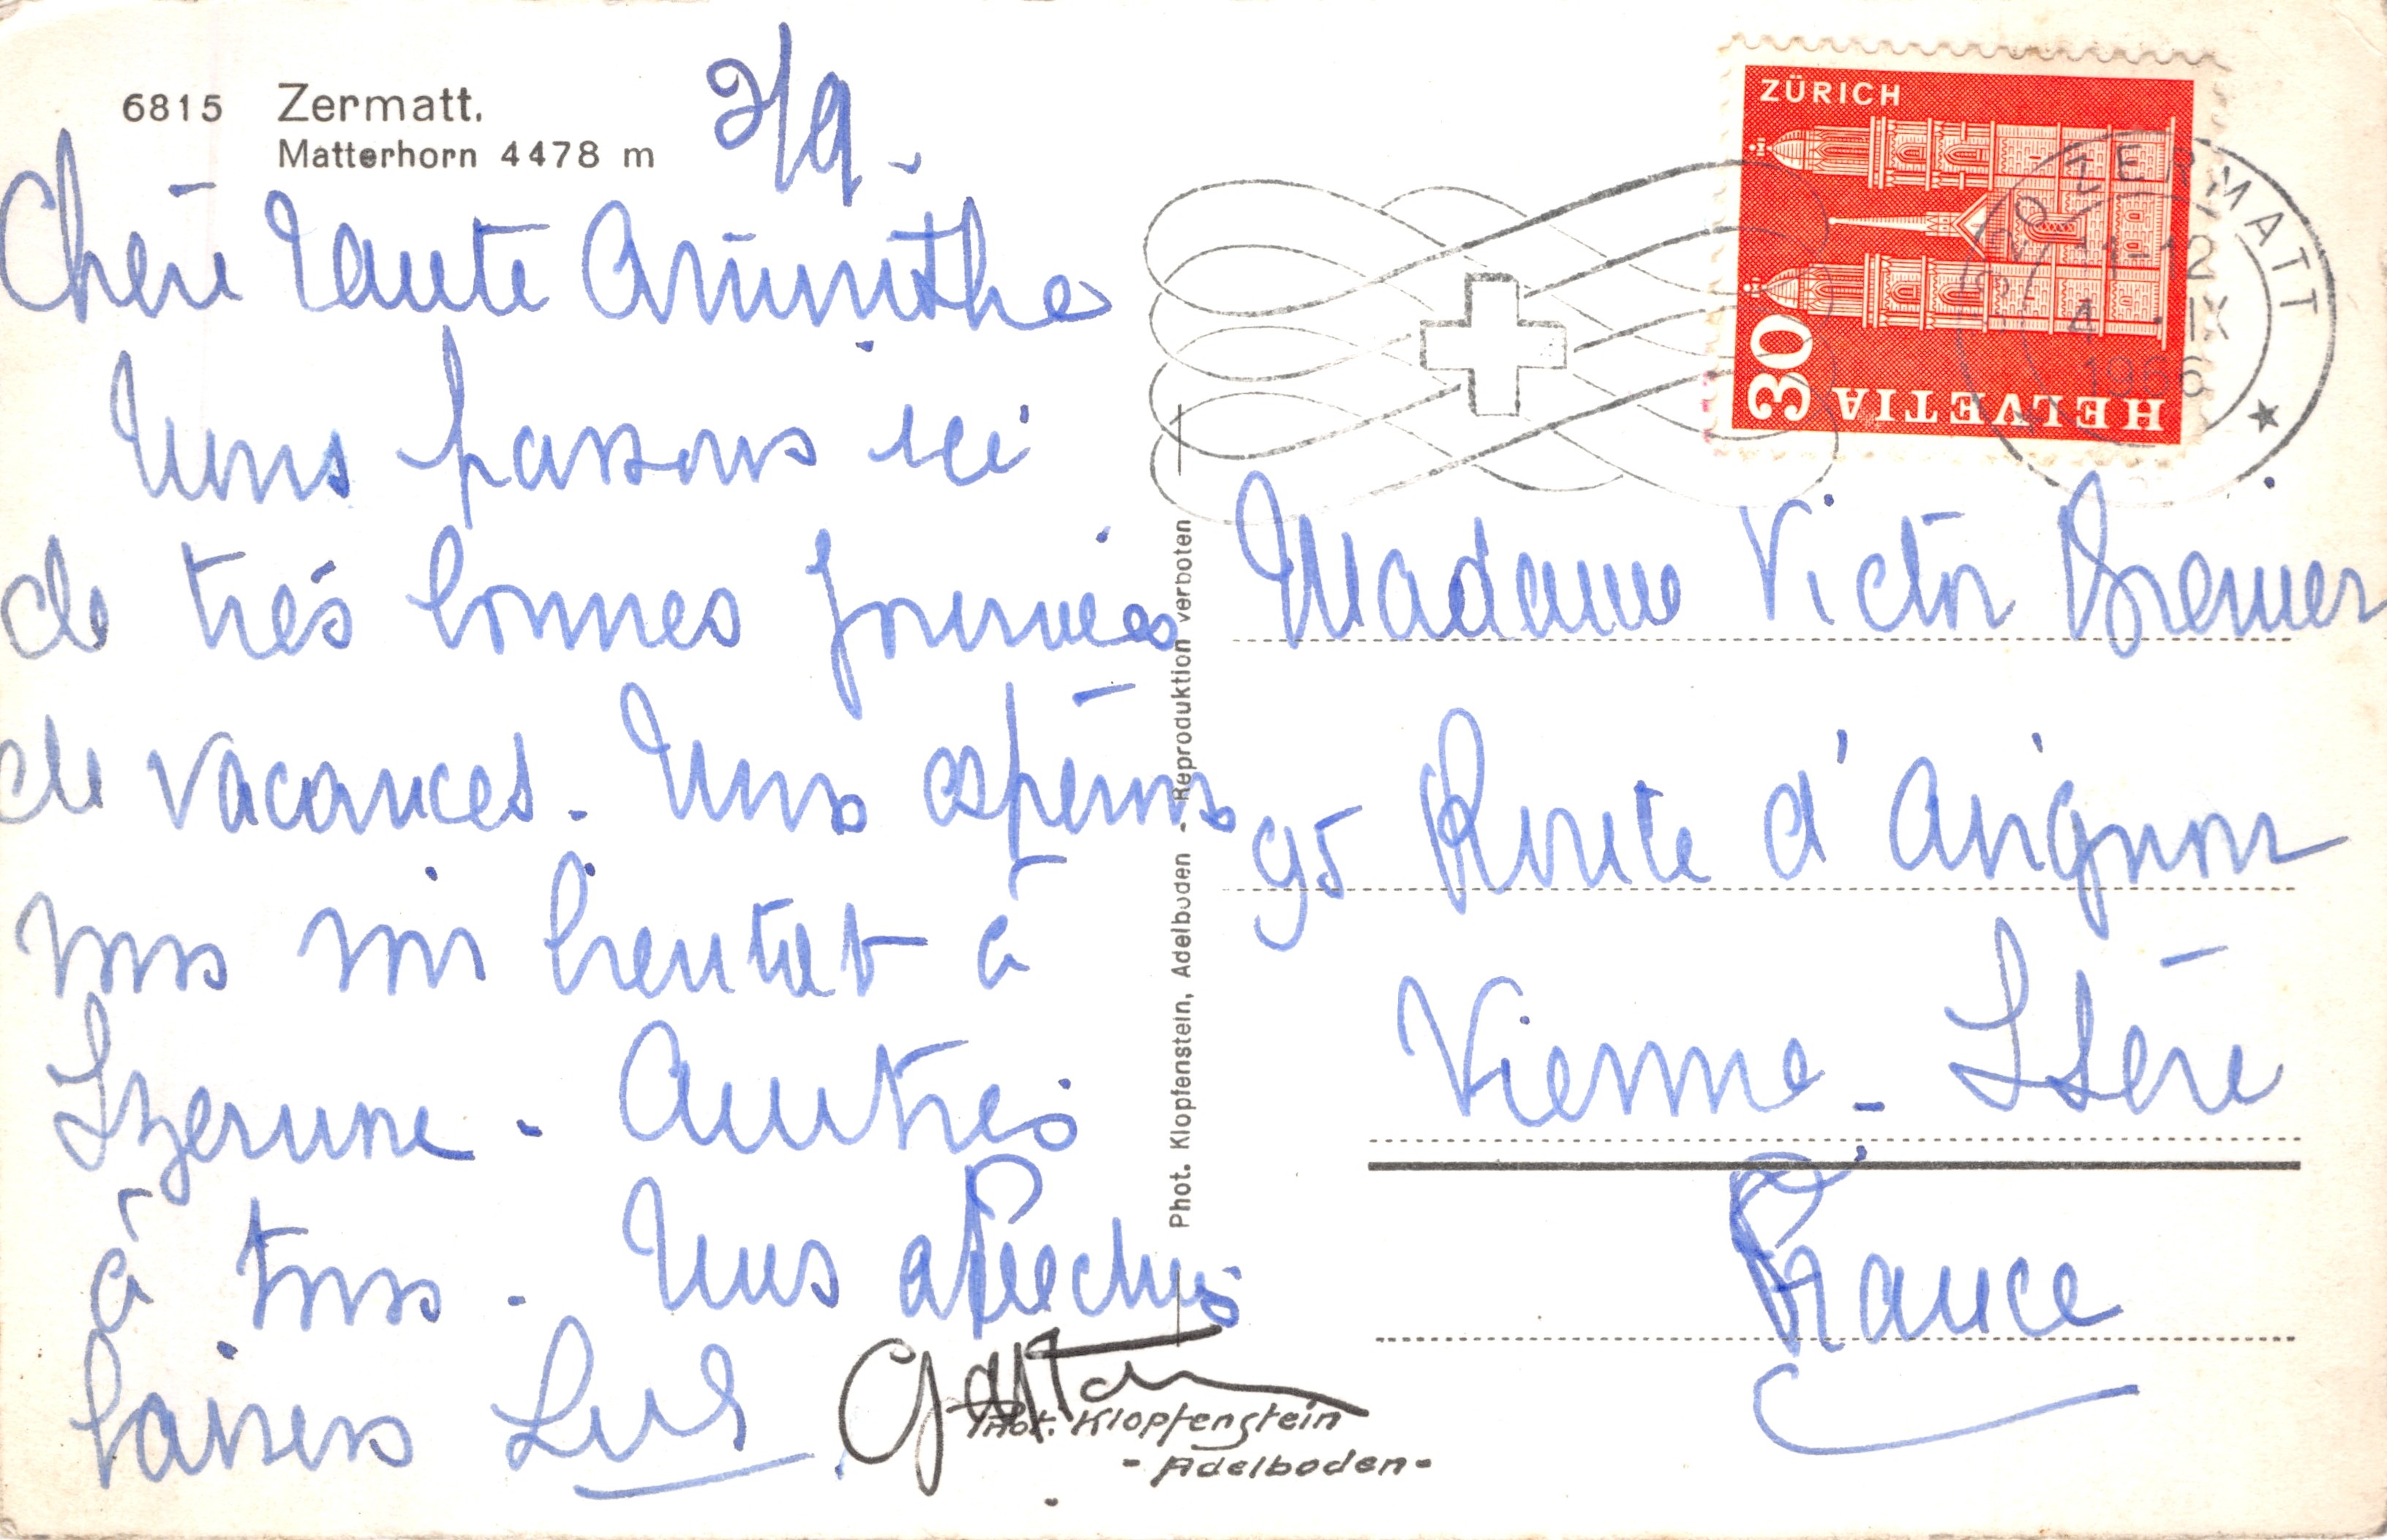 6815 Zermatt.
Matterhorn 4478 m
2/9.
Chère Tante
Nous passons ici
de très bonnes journées
de vacances. Nous espérons
vous voir bientôt à
Izerune. Amitiés
à tous. Nous affectueux
baisers
Gaston
Phot. Klopfenstein
- Adelboden -
Phot. Klopfenstein, Adelboden - Reproduktion verboten
ZÜRICH
30
HELVETIA
3920 ZERMATT
11-12
4. IX
1966
Madame Victor
95 Route d'Avignon
Vienne - Isère
France